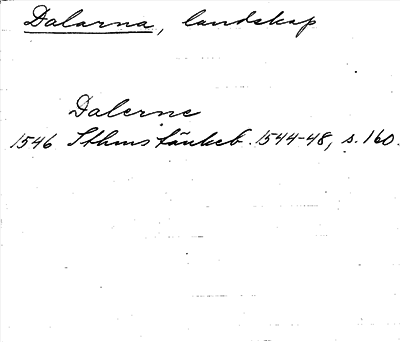 Dalarna, landskap
Dalerne
1546 Sthms tänkeb. 1544-48, s. 160.